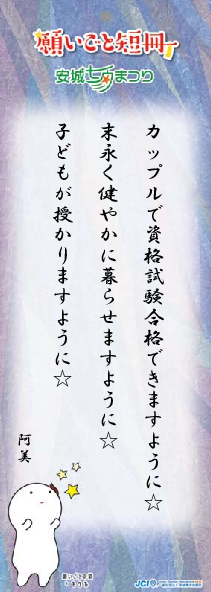 願いごと短冊
安城七夕まつり
カップルで資格試験合格できますように☆
末永く健やかに暮らせますように☆
子どもが授かりますように☆
阿美
JCI